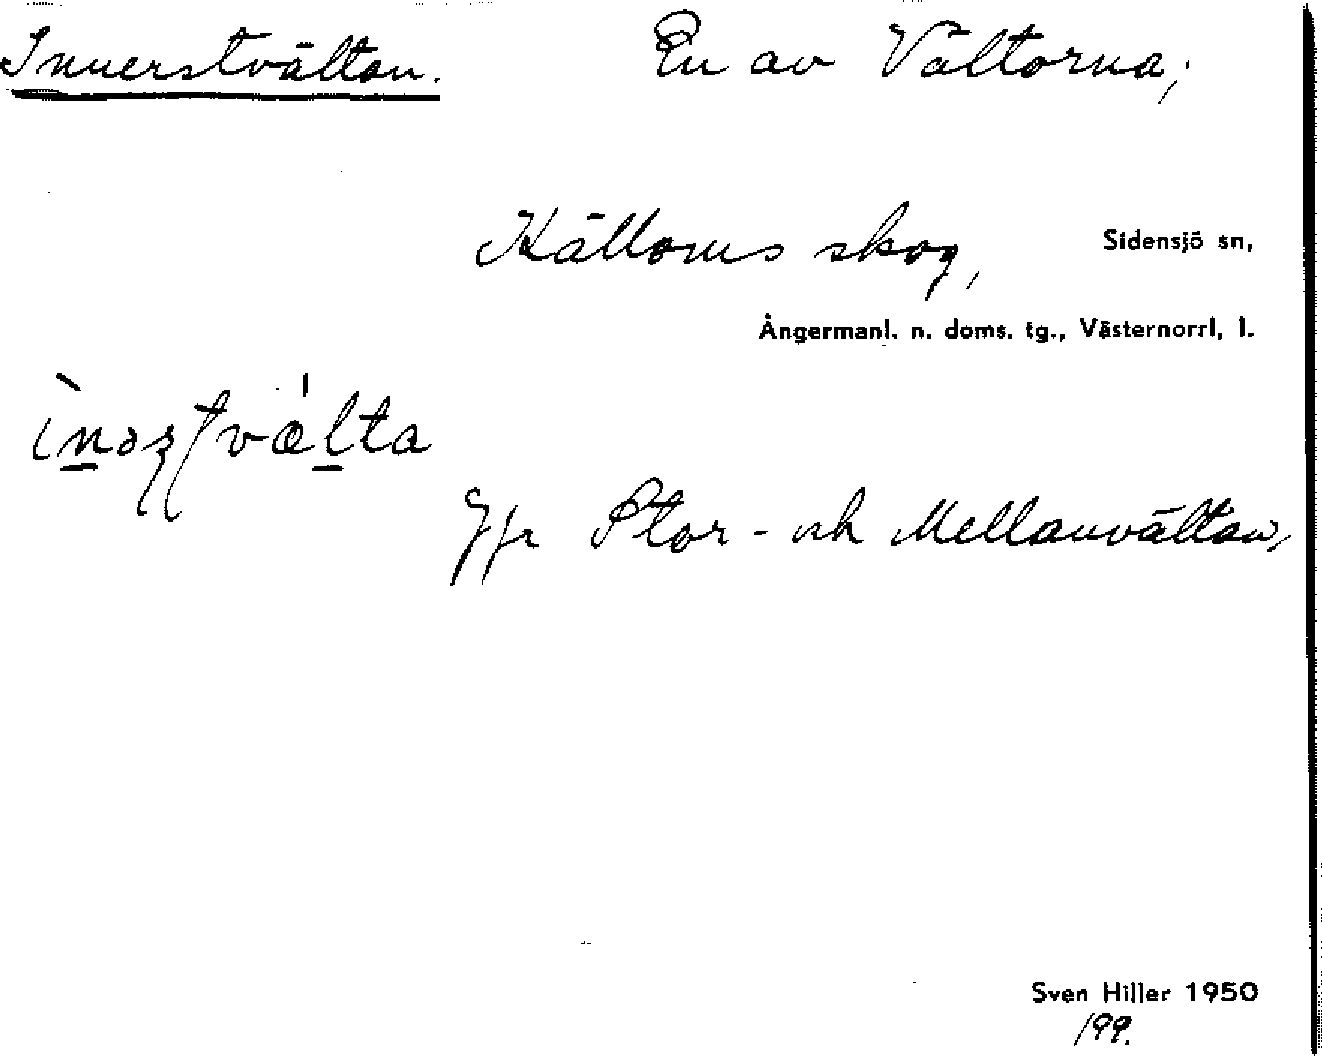 Innerstvältan.
En av Vältorna,
Källoms skog,
Sidensjö sn,
Ångermanl. n. doms. tg., Västernorrl. l.
Jfr Stor- och Mellanvältan,
Sven Hiller 1950
199.